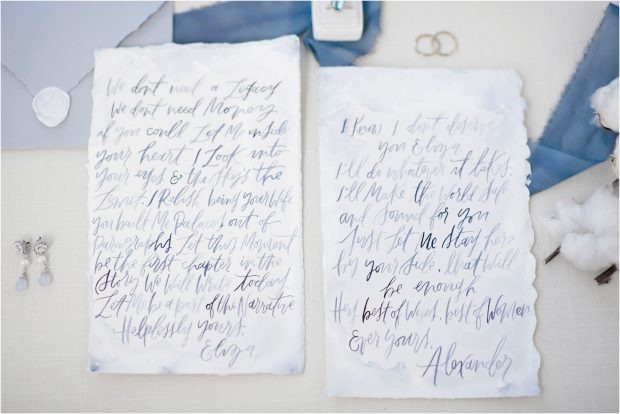 We don't need a Legacy
We don't need Money.
if you could Let Me inside
your heart. I Look into
your eyes & the Sky's the
Limit. I Relish being your Wife
you built Me Palaces out of
Paragraphs Let this Moment
be the first chapter in the
Story We Will Write today
Let Me be a part of the Narrative
Helplessly yours.
Eliza
I Know I don't deserve
you Eliza.
I'll do whatever it takes.
I'll Make the World Safe
and Sound for you
Just Let Me Stay here
by your Side. That Will
be enough
Hey best of Wives. best of Women
Ever yours.
Alexander